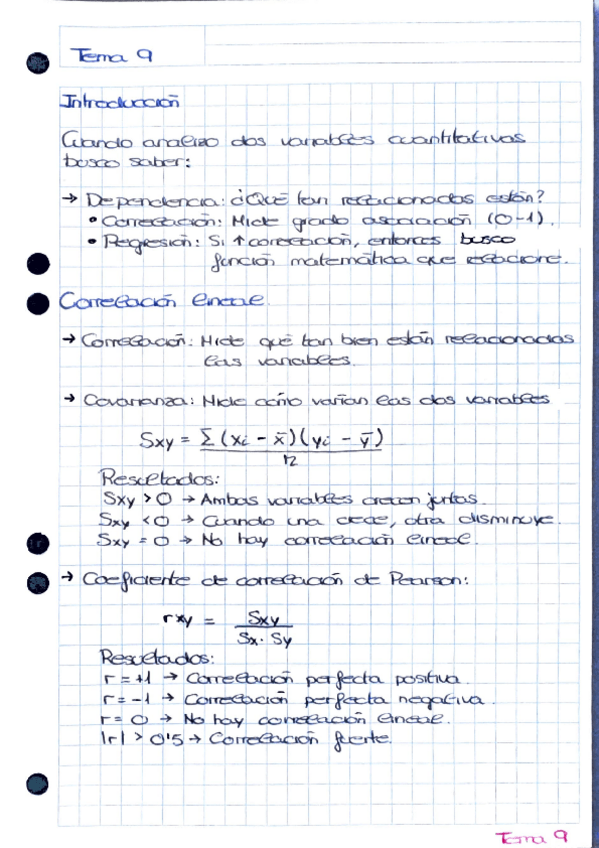 Tema 9
Introducción
Cuando analizo dos variables cuantitativas
busco saber:
→ Dependencia: ¿Qué tan relacionadas están?
• Correlación: Mide grado asociación (0-1).
• Regresión: Si ↑ correlación, entonces busco
función matemática que relacione.
Correlación lineal.
→ Correlación: Mide qué tan bien están relacionadas
las variables.
→ Covarianza: Mide cómo varían las dos variables
Sxy = Σ(xi - x̄)(yi - ȳ) / n
Resultados:
Sxy > 0 → Ambas variables crecen juntas.
Sxy < 0 → Cuando una crece, otra disminuye.
Sxy = 0 → No hay correlación lineal.
→ Coeficiente de correlación de Pearson:
rxy = Sxy / Sx · Sy
Resultados:
r = +1 → Correlación perfecta positiva.
r = -1 → Correlación perfecta negativa.
r = 0 → No hay correlación lineal.
|r| > 0'5 → Correlación fuerte.
Tema 9